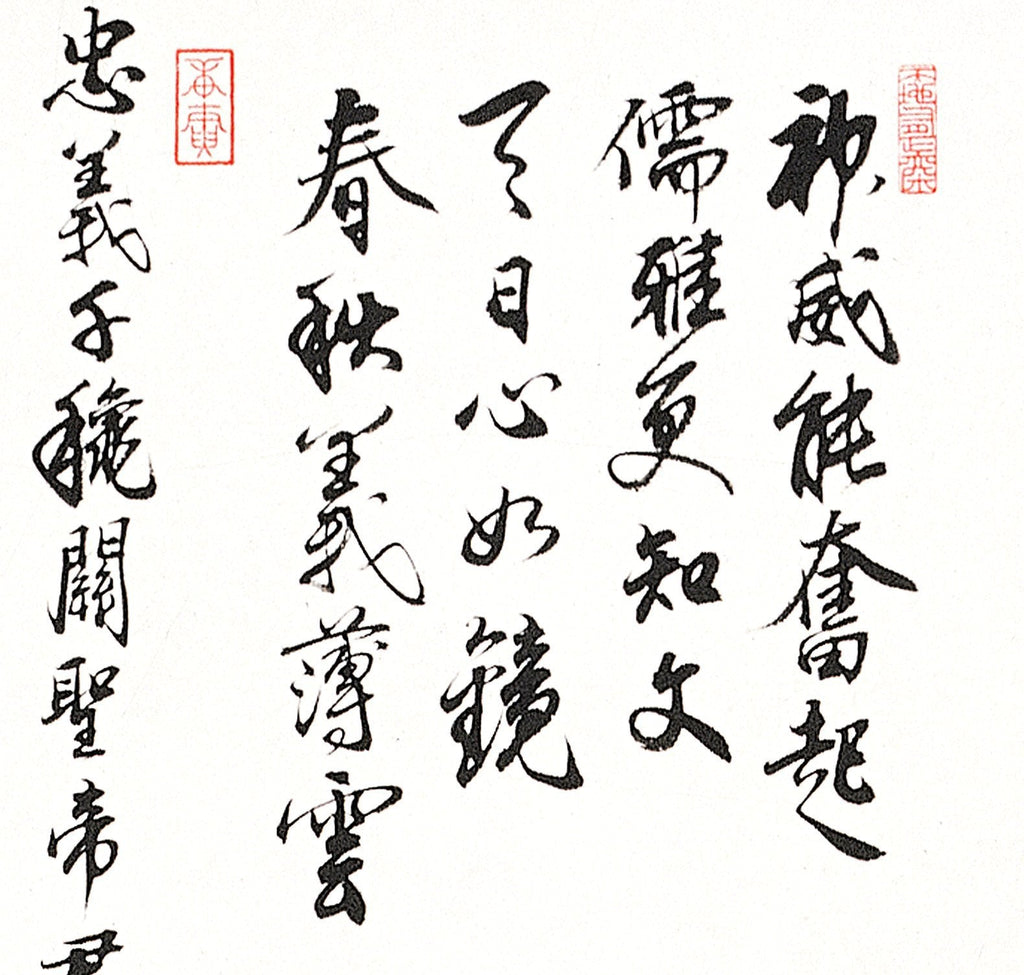 神威能奮起
儒雅更知文
天日心如鏡
春秋義薄雲
忠義千穐關聖帝